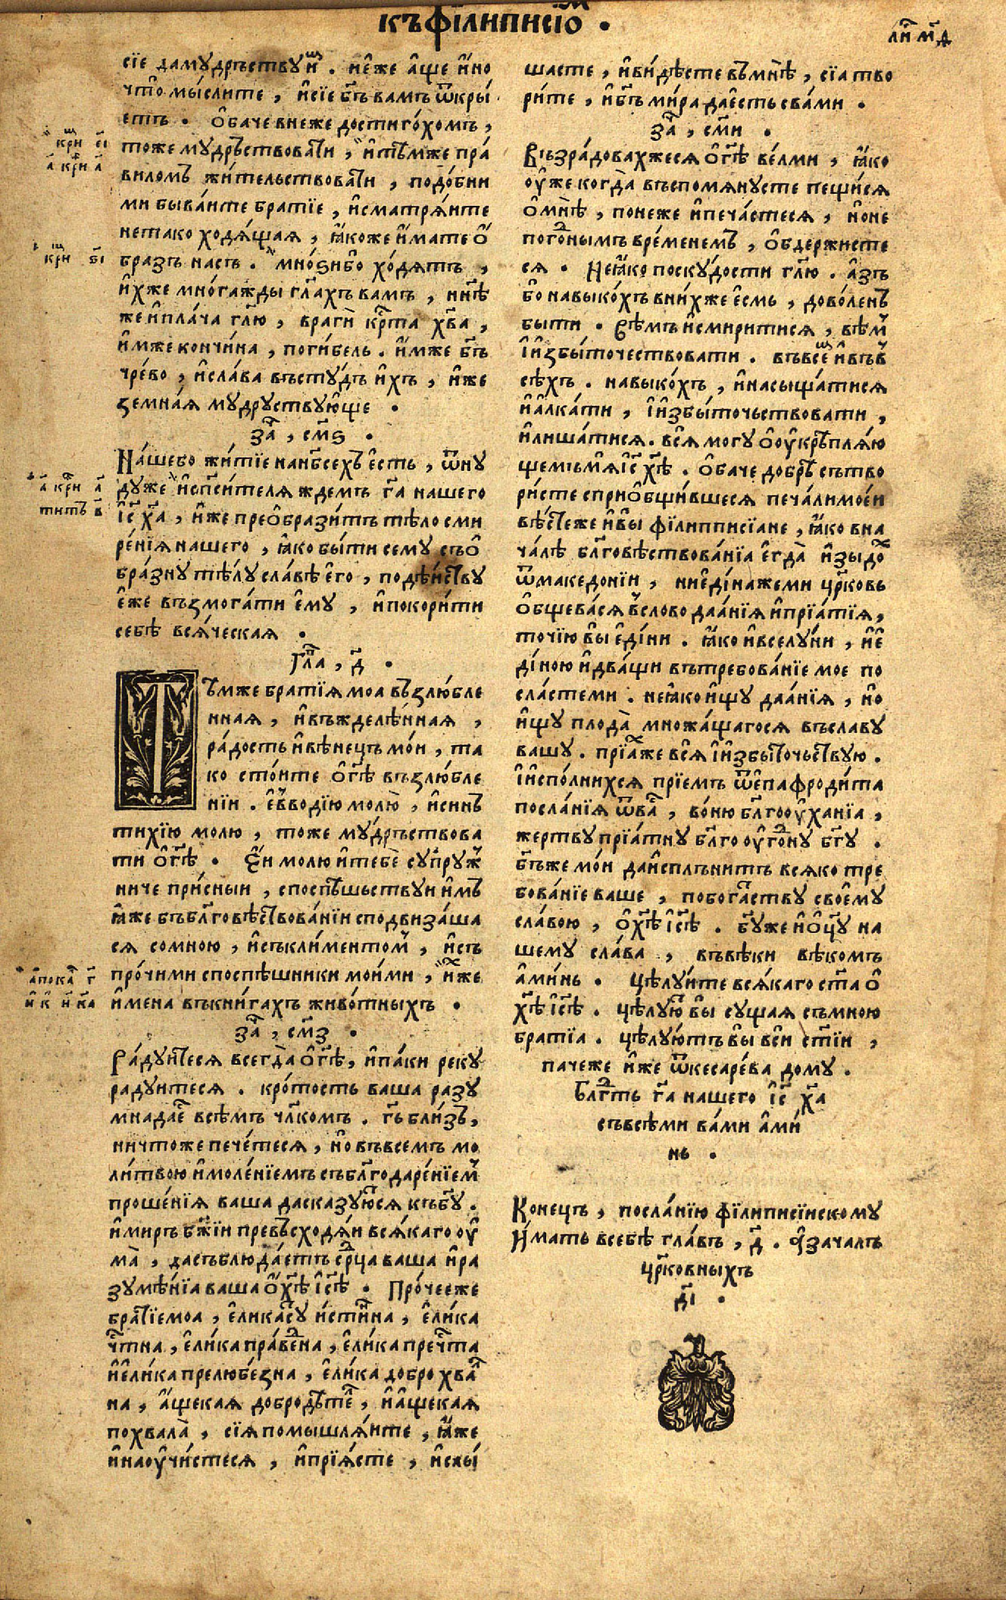 къфїлиписїѡм .
ли҃ мд҃
сїе дамꙋдръствꙋи҆м . не́же а҆ще и҆но
что̀ мы́слите , и҆сїе бг҃ъ вамъ ѿкры́
етъ . О҆баче внеже дости го́хомъ ,
тоже мꙋдръствовати , и҆тѣмже пра́
виломъ жи́тельствовати , подо́бни
ми быва́ите братїе , и҆сматря́ите
нетако ходя́щая , ꙗ҆́коже и҆́мате ѻ҆́
бразъ насъ . мно́ѕи бо хо́дятъ ,
и҆́хже мно́гажды гл҃ахъ вамъ , нн҃ѣ
же и҆пла́ча гл҃ю , врагѝ кр҃та хв҃а ,
и҆́мже кончи́на , поги́бель . и҆́мже бг҃ъ
чре́во , и҆сла́ва встꙋдѣ и҆́хъ , и҆́же
земна́я мꙋдрꙋствꙋю҆ще .
за҃ , см҃ѕ .
На́шебо жи́тїе нанб҃сехъ е҆́сть , ѿнꙋ
дꙋже и҆сп҃си́теля ждемъ гд҃а нашего
і҆с҃ х҃а , и҆́же преѻ҆брази́тъ тѣло сми
ре́нїя нашего , ꙗ҆́ко бы́ти семꙋ съѻ҆́
бра́знꙋ тѣ́лꙋ сла́вѣ е҆го̀ , подѣ́йствꙋ
е҆́же възмога́ти е҆мꙋ , и҆покори́ти
себѣ̀ вся́ческая .
Гла҃ , д҃ .
Тѣмже братїя моа̀ възлю́бле
нная , и҆въжделѣ́нная ,
ра́дость и҆вѣне́цъ мо́и , та
ко сто́ите ѻ҆ гд҃ѣ възлю́бле
нїи . е҆ѵво́дїю молю̀ , и҆синъ
тихі́ю молю , тоже мꙋ́дръствова
ти ѻ҆ гд҃ѣ . Е҆́и молю и҆тебѐ сꙋпрꙋж
ниче при́сныи , споспѣ́шьствꙋи и҆́мъ
ꙗ҆́же бл҃говѣствова́нїи сподвиза́ша
ся сомною , и҆съкли́ментом , и҆съ
про́чими споспѣ́шники мои́ми , и҆́хже
и҆мена въкни́гахъ живо́тныхъ .
за҃ , см҃з .
Ра́дꙋитеся всегда̀ ѻ҆ гд҃ѣ , и҆па́ки рекꙋ
радꙋитеся . кро́тость ваша разꙋ
мнада́е всѣ́мъ чл҃комъ . гд҃ь бли́зъ ,
ничтоже пече́теся , но̀ въвсемъ мо
ли́твою и҆моле́нїемъ събл҃годаре́нїем
проше́нїя ваша дасказꙋю́тся къбг҃ꙋ .
и҆миръ бж҃їи превъсходя́и вся́каго ѹ҆
ма̀ , дасъблюда́етъ ср҃ца ваша и҆ра
зꙋмѣ́нїа ваша ѻ҆ х҃ѣ і҆с҃ѣ . Про́чееже
братїемоа , е҆ли́ка сꙋ и҆́стинна , е҆ли́ка
чт҃на , е҆ли́ка пра́ведна , е҆ли́ка преч҃та
и҆е҆ли́ка прелюбе́зна , е҆ли́ка добро хвал
на , а҆́щекая добродѣтел , и҆а҆́щекая
похвала̀ , сїя помышля́ите , ꙗ҆́же
и҆наѹчи́стеся , и҆прїя́сте , и҆слы́
шасте , и҆ви́дѣсте въмнѣ̀ , сїа тво
ри́те , и҆бг҃ъ ми́ра да е҆́сть сва́ми .
за҃ , см҃и .
Възра́довахжеся ѻ҆ гд҃ѣ ве́лми , ꙗ҆́ко
ѹ҆́же когда̀ въспомянꙋсте пещи́ся
ѻ҆мнѣ̀ , поне́же и҆печа́стеся , и҆оне
пого́дным вре́менемъ , ѻ҆бдержи́сте
ся . Неꙗ҆́ко поскꙋ́дости гл҃ю . а҆зъ
бо навыко́хъ вни́хже е҆́смь , дово́ленъ
бы́ти . Вѣмъ и҆смири́тися , вѣм
и҆і҆збы́точествовати . въвсем и҆във
сѣхъ . навыко́хъ , и҆насыща́тися
и҆а҆лка́ти , и҆і҆збы́точьствовати ,
и҆лиша́тися . вся̀ могꙋ ѻ҆ѹ҆крѣпля́ю
щемъмя і҆с҃ х҃ѣ . О҆баче до́брѣ сътво
ри́сте сприѻ҆бщи́вшеся печа́ли мое́и
вѣ́стеже и҆вы̀ филипписїане , ꙗ҆́ко вна
ча́лѣ бл҃говѣствова́нїа е҆гда̀ и҆зы́дох
ѿмакедо́нїи , ние҆ди́наже ми цр҃ковь
ѻ҆бщева́ся в̾слово даа́нїя и҆прїа́тїя ,
то́чїю вы̀ е҆ди́ни . ꙗ҆́ко и҆вселꙋ́ни , и҆е҆
ди́ною и҆два́щи вътребова́нїе мое по
сла́сте ми . неꙗ҆́ко и҆щꙋ даа́нїя , но̀
и҆щꙋ плода̀ множа́щагося въславꙋ
вашꙋ . прїа́хже вся̀ и҆і҆збы́точьствꙋю .
і҆испо́лнихся прїемъ ѿе҆пафроди́та
посла́нїя ѿвас , во́ню бл҃гоѹха́нїа ,
же́ртвꙋ прїа́тнꙋ бл҃гоѹго́днꙋ бг҃ꙋ .
бг҃ъже мо́и да и҆спо́лнитъ вся́ко тре
бова́нїе ваше , побога́тствꙋ свое́мꙋ
сла́вою , ѻ҆ х҃ѣ і҆с҃ѣ . бг҃ꙋже и҆ѻ҆ц҃ꙋ на
шемꙋ сла́ва , въвѣ́ки вѣ́комъ
а҆ми́нь . Цѣлꙋ́ите вся́каго ст҃а ѻ҆
х҃ѣ і҆с҃ѣ . цѣлꙋют вы̀ сꙋщая съмною
братїа . цѣлꙋю́тъ вы̀ всѝ ст҃їи ,
пачеже и҆́же ѿкесаре́ва домꙋ .
Блг҃ть гд҃а нашего і҆с҃ х҃а
съвсѣ́ми ва́ми а҆ми́
нь .
Коне́цъ , посла́нїю фїлиписїискомꙋ
И҆́мать всебѣ̀ гла́въ , д҃ . а҆зача́лъ
цр҃ко́вныхъ
дı҃ .